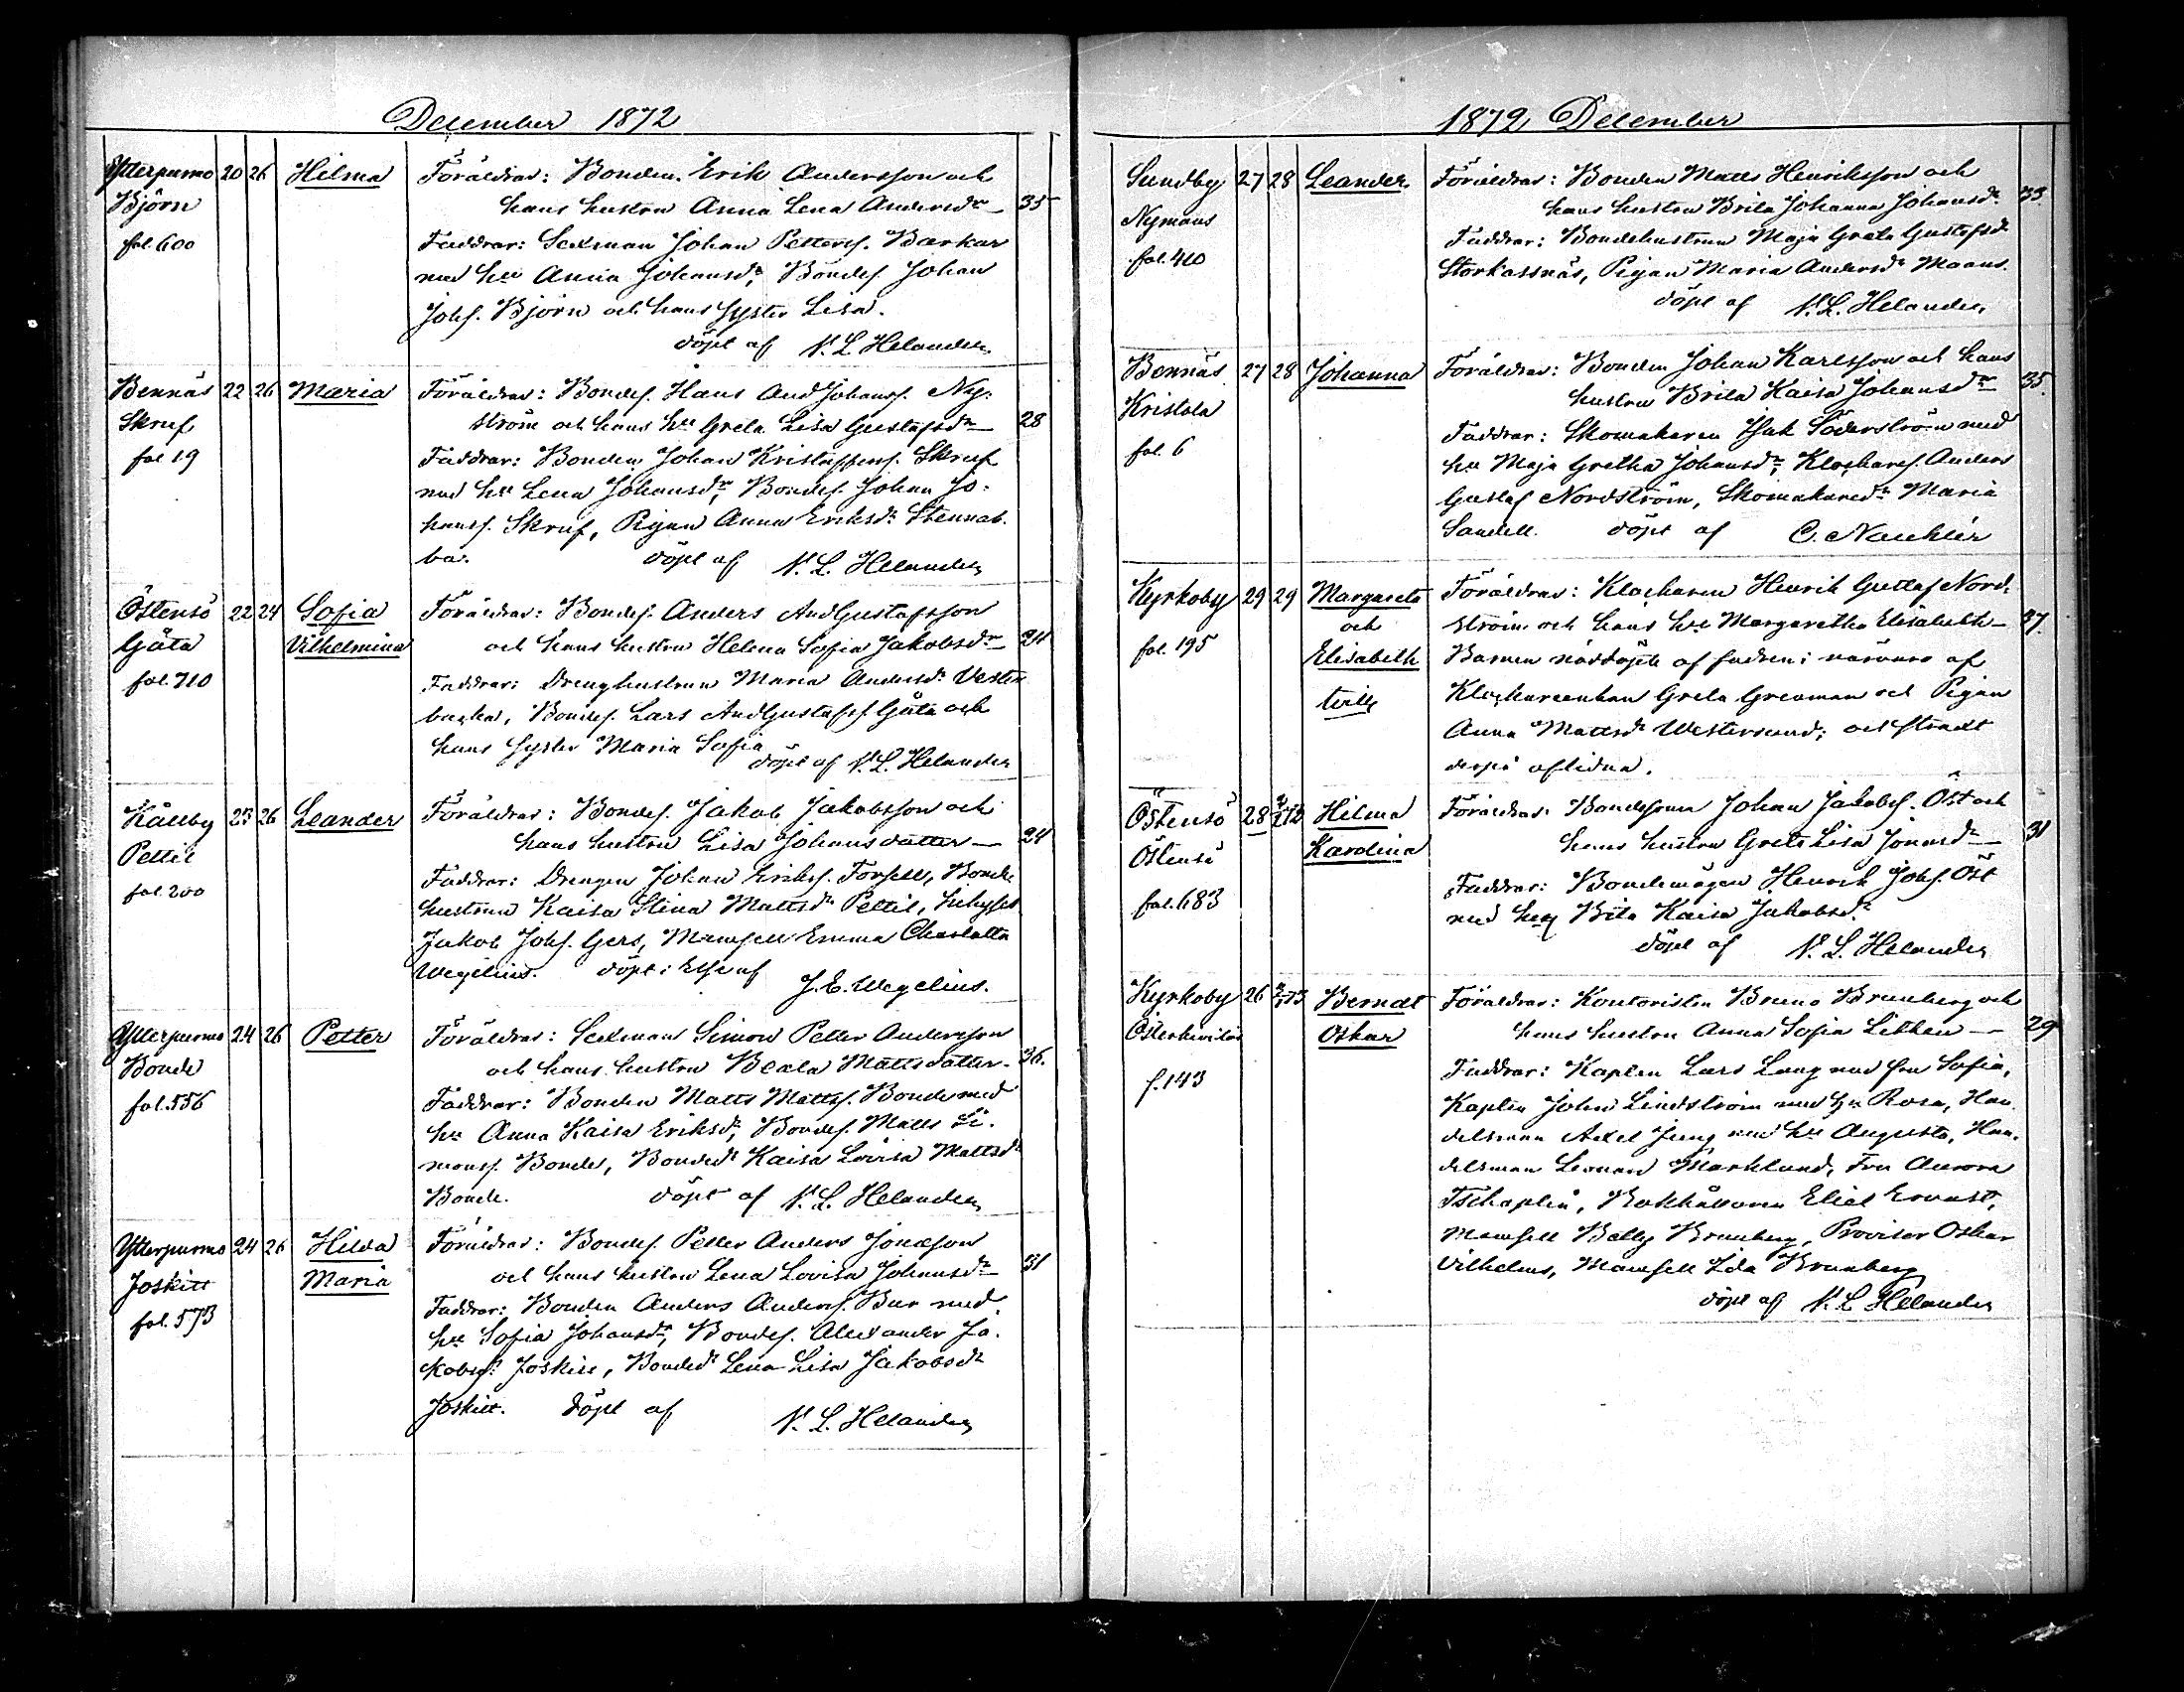 December 1872
Ytterpurmo 20 26 Hilma Föräldrar: Bonden Erik Andersson och
Björn hans hustru Anna Lena Andersdr 35
fol. 600 Faddrar: Sexman Johan Petterss. Barkar
med hu Anna Johansdr, Bondes. Johan
Johs. Björn och hans syster Lisa.
döpt af N. L. Helander
Bennäs 22 26 Maria Föräldrar: Bondes. Hans And Johanss. Ny-
Skruf ström och hans hu Greta Lisa Gustafsdr 28
fol 19 Faddrar: Bonden Johan Kristoffers. Skruf
med hu Lena Johansdr, Bondes. Johan Jo-
hanss. Skruf, Pigan Anna Eriksdr Stennab-
ba. döpt af N. L. Helander
Östensö 22 24 Sofia Föräldrar: Bondes. Anders And Gustafsson
Gäta Vilhelmina och hans hustru Helena Sofia Jakobsdr 24
fol. 710 Faddrar: Drenghustrun Maria Andersdr Vester
backa, Bondes. Lars And Gustafss. Gäta och
hans syster Maria Sofia
döpt af N. L. Helander
Kållby 23 26 Leander Föräldrar: Bondes. Jakob Jakobsson och
Pettil hans hustru Lisa Johansdotter 24
fol. 200 Faddrar: Drengen Johan Eriks. Forsell, Bonde
hustrun Kaisa Stina Mattsdr Pettil,
Jakob Johs. Gers, Mamsell Emma Charlotta
Wegelius. döpt af J. E. Wegelius.
Ytterpurmo 24 26 Petter Föräldrar: Sexman Simon Petter Andersson
Bonde och hans hustru Beata Mattsdotter 36.
fol. 556 Faddrar: Bonden Matts Mattss. Bonde med
hu Anna Kaisa Eriksdr, Bondes. Matts Si-
monss. Bonde, Bonded. Kaisa Lovisa Mattsdr
Bonde. döpt af N. L. Helander
Ytterpurmo 24 26 Hilda Föräldrar: Bondes. Petter Anders Jonasson
Joskitt Maria och hans hustru Lena Lovisa Johansdr 31
fol. 573 Faddrar: Bonden Anders Anderss. Bur med
hu Sofia Johansdr, Bondes. Alexander Ja-
kobss. Joskitt, Bonded. Lena Lisa Jakobsdr
Joskitt. döpt af N. L. Helander
1872 December
Sundby 27 28 Leander Föräldrar: Bonden Matts Henriksson och
Nymans hans hustru Brita Johanna Johansdr 33
fol. 410 Faddrar: Bondehustrun Maja Greta Gustafsdr
Storkassnäs, Pigan Maria Andersdr Maans.
döpt af N. L. Helander.
Bennäs 27 28 Johanna Föräldrar: Bonden Johan Karlsson och hans
Kristola hustru Brita Kaisa Johansdr 35.
fol. 6 Faddrar: Skomakaren Isak Söderström med
hu Maja Gretha Johansdr, Klockares. Anders
Gustaf Nordström, Skomakaredr Maria
Sandell. döpt af
Kyrkoby 29 29 Margareta Föräldrar: Klockaren Henrik Gustaf Nord-
och ström och hans hu Margaretha Elisabeth 37.
fol. 195 Elisabeth Barnen nöddöpte af fadren i närvaro af
tvill. Klockareenkan Greta Greaman och Pigan
Anna Mattsdr Westersund; och straxt
derpå aflidna.
Östensö 28 Hilma Föräldrar: Bondesonen Johan Jakobs. Öst och
Östensö Karolina hans hustru Greta Lisa Jonasdr 31
fol. 683 Faddrar: Bondemågen Henrik Johs. Öst
med hu Brita Kaisa Jakobsdr
döpt af N. L. Helander
Kyrkoby 26 Berndt Föräldrar: Kontoristen Bruno Brunberg och
Oskar hans hustru Anna Sofia Lithen 29
f. 143 Faddrar: Kapten Lars Lang med fru Sofia,
Kapten John Lindström med hu Rosa, Han-
delsman Axel Jung med hu Augusta, Han-
delsman Leonard Marklund, Fru Aurora
Tschaplin, Bokhållaren Eliel Ervast,
Mamsell Betty Brunberg, Provisor Oskar
Vilhelms, Mamsell Ida Brunberg
döpt af N. L. Helander